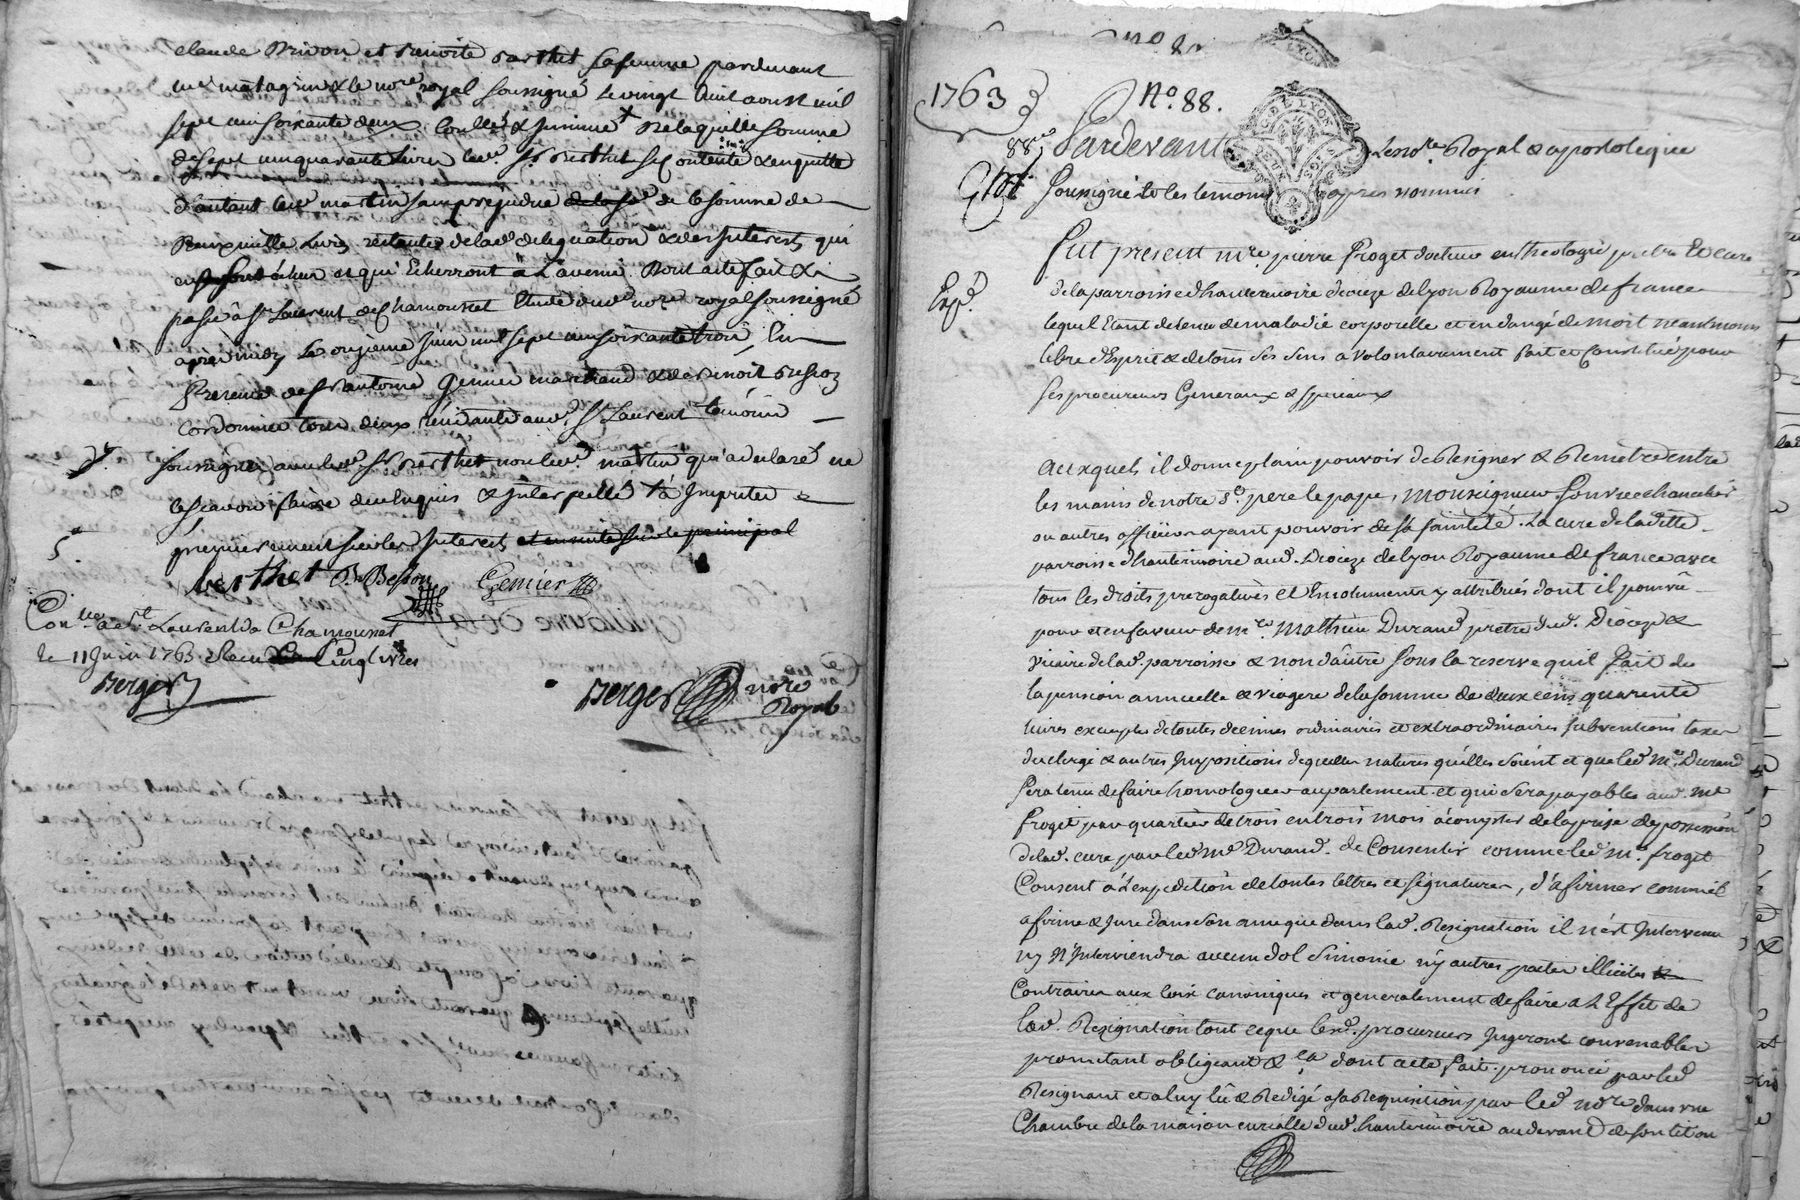 Claude Brivon et Benoite Berthet sa femme pardevant
me matagrin & le nore royal soussigné le vingt huit aoust mil
sept cen soixante deux Conllé & Jnsinué + De laquelle somme
de sept cen quarante livres led. Sr Berthet se Contente & en quitte
d'autant led. martin sans prejudice de la sd de la somme de
Deux mille Livres restante de lad. delegation & des Interests qui
en sont échus et qui Echerront à L'avenir. Dont acte fait &
passé à St Laurent de Chamousset Etude dud. nore royal soussigné
apres midy Le onzieme Juin mil sept cen soixante trois, En
Presence de Sr antoine Gemier marchand & de Benoit Besson
Cordonnier tous deux residants aud. St Laurent temoins
soussignez avec led. Sr Berthet non led. martin qui a declaré ne
le scavoir faire de ce enquis & Interpellé + à Imputer
premierement sur les Interests et ensuite sur le principal
berthet B. Besson Gemier
Conlle a St Laurent de Chamousset
le 11 Juin 1763 Recu Cinq livres
Berger
Berger nore Royal
1763 No. 88.
88e Pardevant Le nore Royal & apostolique
soussigné & les temoins apres nommés
Fut present mre. pierre Froget docteur en theologie pretre & Curé
Exp.
de la parroisse d'hauterivoire dioceze de Lyon Royaume de france
lequel Etant detenu de maladie corporelle et en dangé de mort neantmoins
libre d'Esprit & de tous ses sens a volontairement fait et Constitué pour
ses procureurs Generaux & speciaux
auxquels il donne plain pouvoir de Resigner & Remettre entre
les mains de notre St. pere le pape, monseigneur son vice chancelier
ou autres officiers ayant pouvoir de sa sainteté. La cure de ladite
parroisse d'hauterivoire aud. Dioceze de Lyon Royaume de france avec
tous les droits prerogatives et Emoluments y attribués dont il pourvû
pour et en faveur de mre. Mathieu Durand pretre dud. Dioceze &
vicaire de lad. parroisse & non d'autre sous la reserve quil fait de
la pension annuelle & viagere de la somme de deux cens quarente
livres exempte de toutes decimes ordinaires et extraordinaires subventions taxes
du clergé & autres Impositions de quelles natures quélles soient et que led. Me. Durand
sera tenu de faire homologuer au parlement. et qui sera payable aud. Me
Froget par quartier de trois en trois mois à compter de la prise de possession
de lad. cure par led. Me Durand. de Consentir comme led. Me. froget
Consent à l'expedition de toutes lettres et signatures, d'afirmer comme il
afirme & jure dans son ame que dans lad. Resignation il n'est Intervenu
ny n'Interviendra aucun dol simonie ny autres pactes illicites &
Contraires aux loix canoniques et generalement de faire a l'Effet de
lad. Resignation tout ce que lesd. procureurs Jugeront convenables
promettant obligeant & ca dont acte fait. prononcé par led
Resignant et a luy lû & Redigé a sa Requisition par led. nore dans une
Chambre de la maison curialle dud. hauterivoire au devant de son lit ou